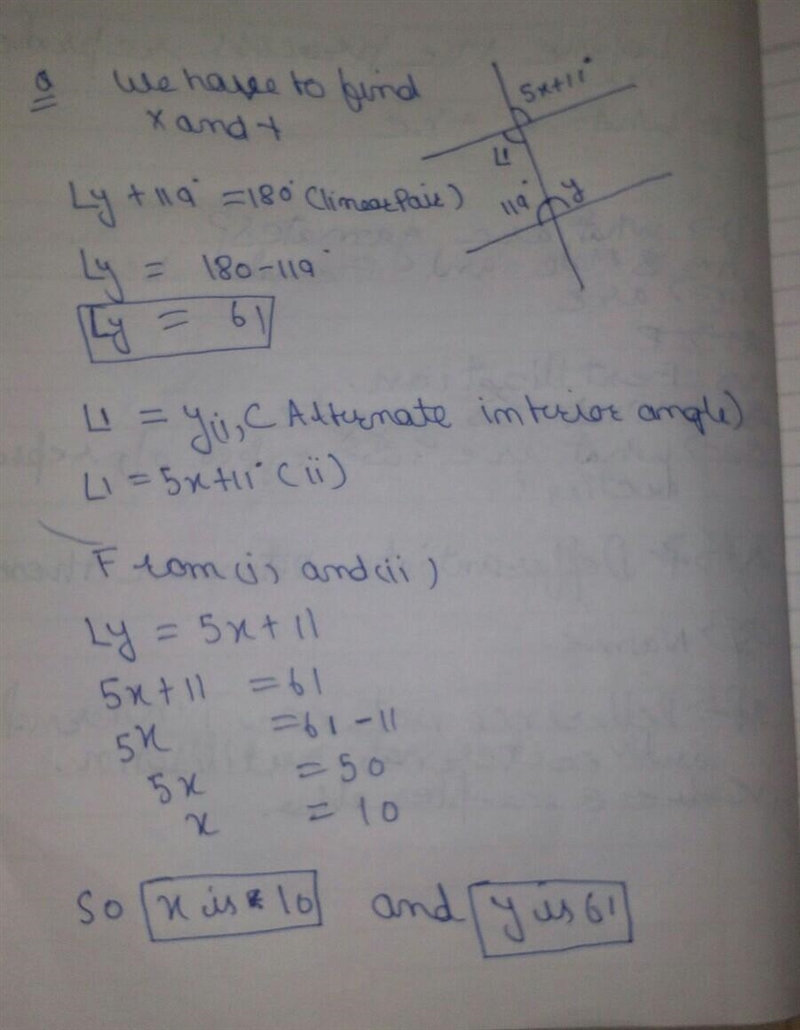 Q We have to find
x and y
5x+11°
L1
119° y
Ly + 119° = 180° (linear Pair)
Ly = 180-119°
Ly = 61
L1 = y (i) (Alternate interior angle)
L1 = 5x+11° (ii)
From (i) and (ii)
Ly = 5x+11
5x+11 = 61
5x = 61-11
5x = 50
x = 10
So x is 10 and y is 61